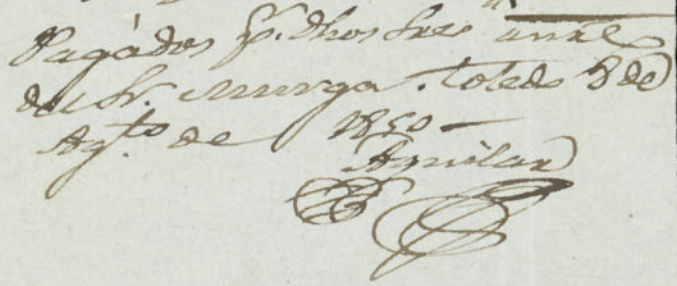 Pagados p.r dhos Sres
del Sr. Murga. Toledo 8 de
Ag.to de 1850
Aguilar